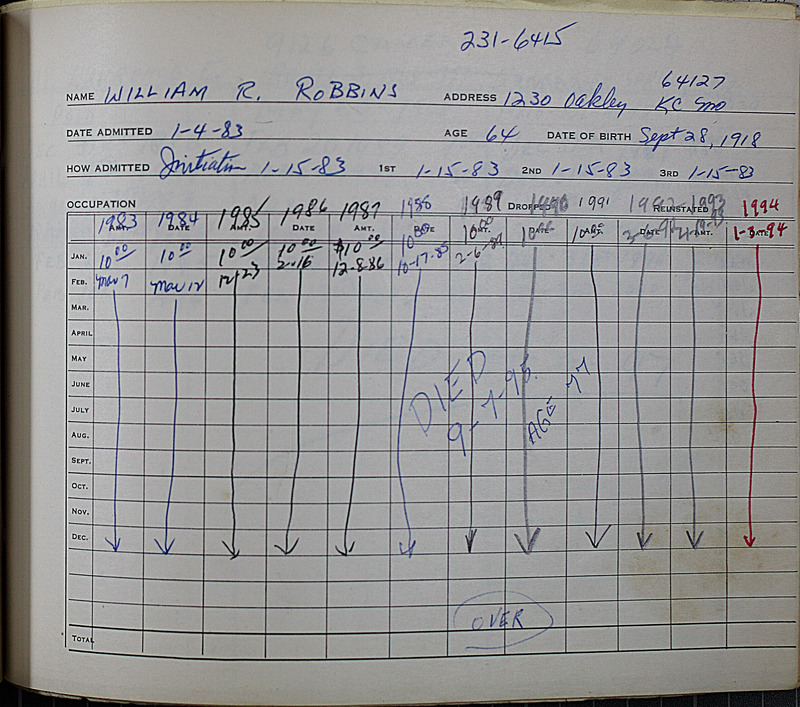 231-6415
64127
NAME WILLIAM R. ROBBINS ADDRESS 1230 Oakley KC Mo
DATE ADMITTED 1-4-83 AGE 64 DATE OF BIRTH Sept 28, 1918
HOW ADMITTED Initiation 1-15-83 1ST 1-15-83 2ND 1-15-83 3RD 1-15-83
OCCUPATION DROPPED REINSTATED
1983 1984 1985 1986 1987 1988 1989 1990 1991 1992 1993 1994
AMT. DATE AMT. DATE AMT. DATE AMT. DATE AMT. DATE AMT. DATE
JAN. 10 00 10 00 10 00 10 00 $10 00 10 00 10 00 1-3-94
FEB. Mar 7 Mar 12 12/23 2-16 12-8-86 10-17-88 2-6-89
MAR.
APRIL
MAY
JUNE
JULY
DIED
9-7-95.
AGE 77
AUG.
SEPT.
OCT.
NOV.
DEC.
OVER
TOTAL